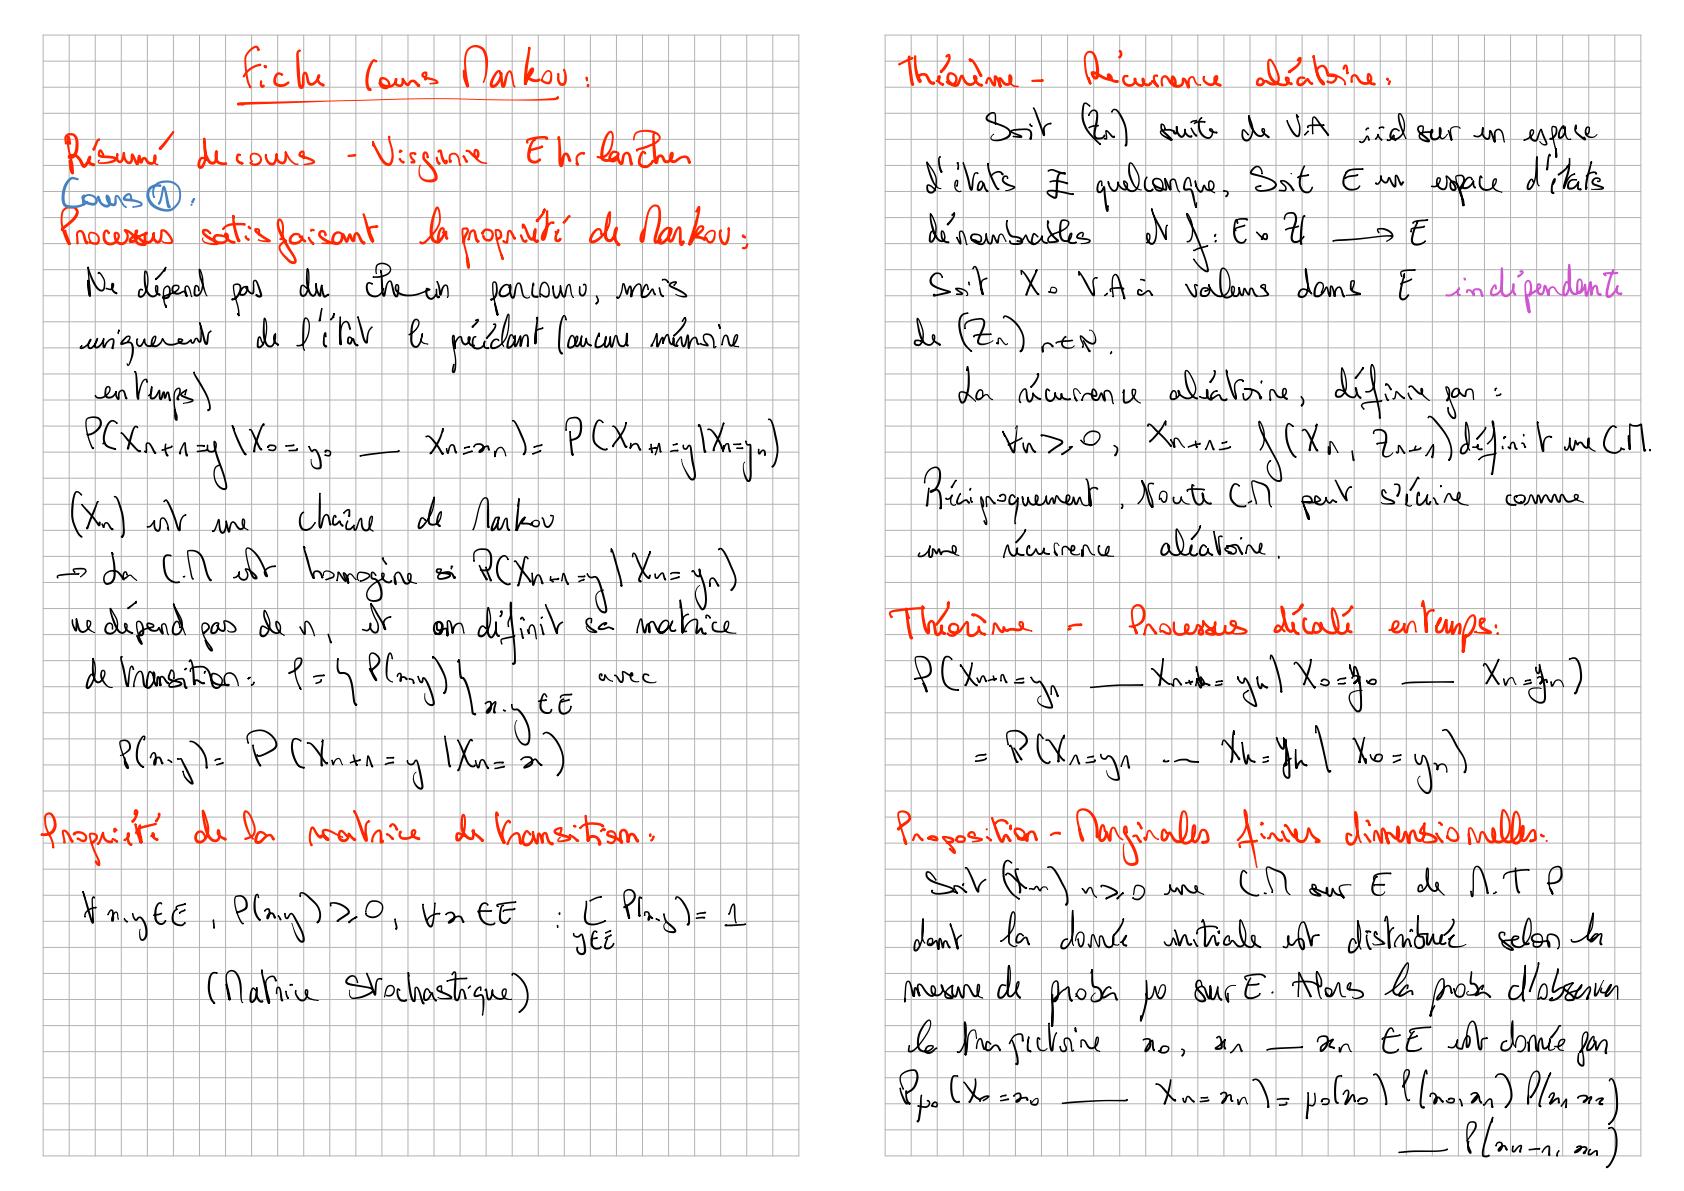 Fiche Cours Markov :
Résumé de cours - Virginie Ehrlancher
Cours ①.
Processus satisfaisant la propriété de Markov :
Ne dépend pas du chemin parcouru, mais
uniquement de l'état le précédant (aucune mémoire
en temps)
P(Xn+1=y | X0=y0 — Xn=xn) = P(Xn+1=y | Xn=yn)
(Xn) est une chaîne de Markov
→ La C.M est homogène si P(Xn+1=y | Xn=yn)
ne dépend pas de n, et on définit sa matrice
de transition : P = { P(x,y) } x,y ∈ E avec
P(x,y) = P(Xn+1=y | Xn=x)
Propriété de la matrice de transition :
∀x,y ∈ E, P(x,y) ≥ 0, ∀x ∈ E : Σ y∈E P(x,y) = 1
(Matrice Stochastique)
Théorème - Récurrence aléatoire :
Soit (Zn) suite de V.A iid sur un espace
d'états Z quelconque, Soit E un espace d'états
dénombrables et f : E x Z → E
Soit X0 V.A à valeurs dans E indépendante
de (Zn) n∈N.
La récurrence aléatoire, définie par :
∀n ≥ 0, Xn+1 = f(Xn, Zn+1) définit une C.M.
Réciproquement, toute C.M peut s'écrire comme
une récurrence aléatoire.
Théorème - Processus décalé en temps :
P(Xn+1=y1 — Xn+k=yk | X0=y0 — Xn=yn)
= P(X1=y1 .— Xk=yk | X0=yn)
Proposition - Marginales finies dimensionnelles :
Soit (Xn) n≥0 une C.M sur E de M.T P
dont la donnée initiale est distribuée selon la
mesure de proba μ0 sur E. Alors la proba d'observer
la trajectoire x0, x1 — xn ∈ E est donnée par
Pμ0 (X0=x0 — Xn=xn) = μ0(x0) P(x0,x1) P(x1,x2)
— P(xn-1, xn)